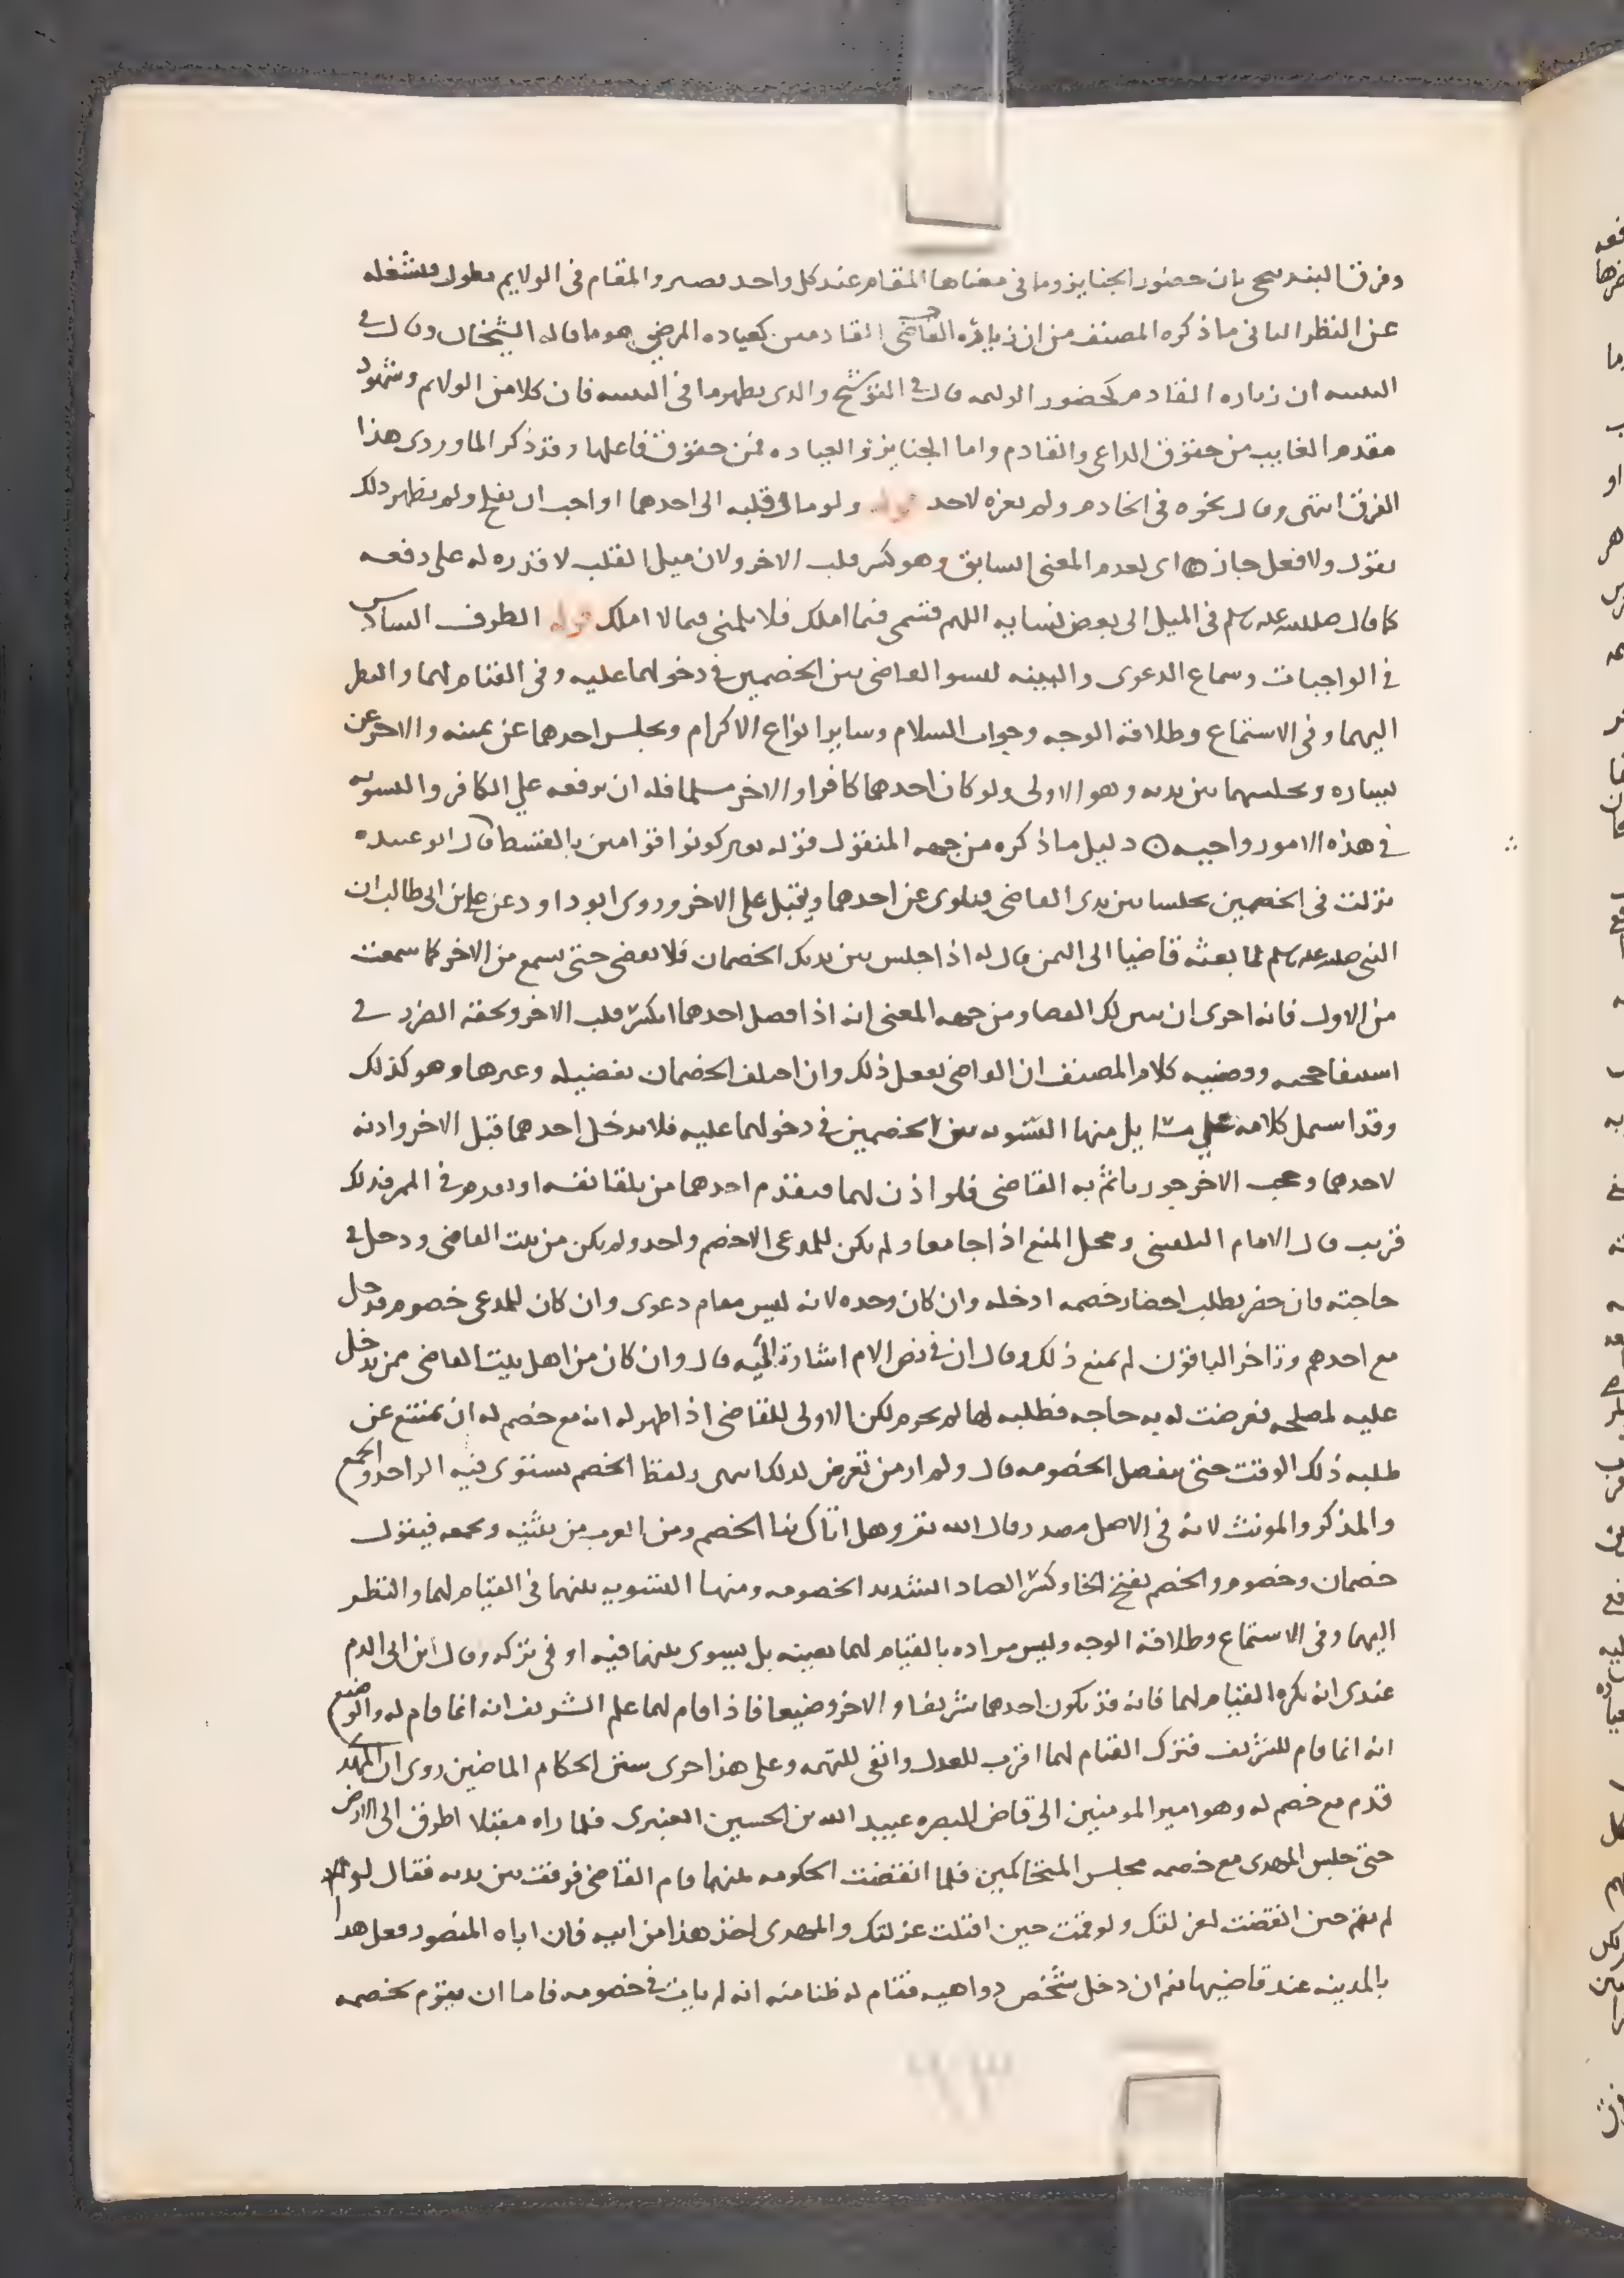 وفرق البندنيجي بان حضور الجنايز وما في معناها المقام عند كل واحد يصير والمقام في الولايم يطول ويشغله
عن النظر الثاني ما ذكره المصنف من ان زيارة القاضي القادمين كعياده المرضى هو ما قاله الشيخان وقال في
التنبيه ان زياره القادم كحضور الوليمه قال في التوشيح والذي يظهر ما في التنبيه فان كلا من الولايم وشهود
مقدم الغايب من حقوق الداعي والقادم واما الجنايز والعياده فمن حقوق فاعلها وقد ذكر الماوردي هذا
الفرق انتهى وقال نحوه في الخادم ولم يعزه لاحد قوله ولو مال قلبه الى احدهما او احب ان يفلح ولم يظهر ذلك
بقول ولا فعل جاز اي لعدم المعنى السابق وهو كسر قلب الاخر ولان ميل القلب لا قدره له على دفعه
كما قال صلى الله عليه وسلم في الميل الى بعض نسايه اللهم قسمي فيما املك فلا تلمني فيما لا املك قوله الطرف السادس
في الواجبات وسماع الدعوى والبينه ليسو القاضي بين الخصمين في دخولهما عليه وفي القيام لهما والنظر
اليهما وفي الاستماع وطلاقة الوجه وجواب السلام وساير انواع الاكرام ويجلس احدهما عن يمينه والاخر عن
يساره ويجلسهما بين يديه وهو الاولى ولو كان احدهما كافرا والاخر مسلما فله ان يرفعه علي الكافر والتسويه
في هذه الامور واجبه دليل ما ذكره من جهه المنقول قوله تعالى كونوا قوامين بالقسط قال ابو عبيده
نزلت في الخصمين يجلسا بين يدي القاضي فيلوي عن احدهما ويقبل على الاخر وروى ابو داود عن علي بن ابي طالب ان
النبي صلى الله عليه وسلم لما بعثه قاضيا الى اليمن قال له اذا جلس بين يديك الخصمان فلا تقضي حتى تسمع من الاخر كما سمعت
من الاول فانه احرى ان يتبين لك القضا ومن جهه المعنى انه اذا فضل احدهما انكسر قلب الاخر ولحقه الضرر في
استيفا حجته وقضيه كلام المصنف ان القاضي يفعل ذلك وان اختلف الخصمان بفضيله وغيرها وهو كذلك
وقد اشتمل كلامه علي مسايل منها التسويه بين الخصمين في دخولهما عليه فلا يدخل احدهما قبل الاخر واذنه
لاحدهما وحجب الاخر جور ياثم به القاضي فلو اذن لهما فيقدم احدهما من تلقا نفسه او تقدم في الممر فذلك
قريب قال الامام البلقيني ومحل المنع اذا جا معا ولم يكن للمدعي الا خصم واحد ولم يكن من بيت القاضي ودخل في
حاجته فان حضر يطلب احضار خصمه ادخله وان كان وحده لانه ليس مقام دعوى وان كان للمدعي خصوم فدخل
مع احدهم وتاخر الباقون لم يمنع ذلك وقال ان في نص الام اشارة اليه قال وان كان من اهل بيت القاضي ممن يدخل
عليه لمصلحه فعرضت له به حاجه فطلبه لها لم يحرم لكن الاولى للقاضي اذا ظهر له انه مع خصم له ان يمتنع عن
طلبه ذلك الوقت حتى ينفصل الخصومه قال ولم ار من تعرض لذلك انتهى ولفظ الخصم يستوي فيه الواحد والجمع
والمذكر والمونث لانه في الاصل مصدر وقال الله تعالى وهل اتاك نبا الخصم ومن العرب من يثنيه ويجمعه فيقول
خصمان وخصوم والخصم بفتح الخا وكسر الصاد الشديد الخصومه ومنها التسويه بينهما في القيام لهما والنظر
اليهما وفي الاستماع وطلاقة الوجه وليس مراده بالقيام لهما تعيينه بل يسوي بينهما فيه او في تركه وقال ابن ابي الدم
عندي انه يكره القيام لهما فانه قد يكون احدهما شريفا والاخر وضيعا فاذا قام لهما علم الشريف انه انما قام له والوضيع
انه انما قام للشريف فترك القيام لهما اقرب للعدل وانفى للتهمه وعلى هذا جرى سنن الحكام الماضين روي ان المهدي
قدم مع خصم له وهو امير المومنين الى قاض البصره عبيد الله بن الحسين العنبري فلما راه مقبلا اطرق الى الارض
حتى جلس المهدي مع خصمه مجلس المتحاكمين فلما انقضت الحكومه بينهما قام القاضي فوقف بين يديه فقال لو
لم تقم حين انقضت لعزلتك ولو قمت حين اقبلت عزلتك والمهدي اخذ هذا من ابيه فان اباه المنصور فعل هذا
بالمدينه عند قاضيها نعم ان دخل شخص ذو اهبه فقام له ظنا منه انه لم يات في خصومه فاما ان يقوم لخصمه